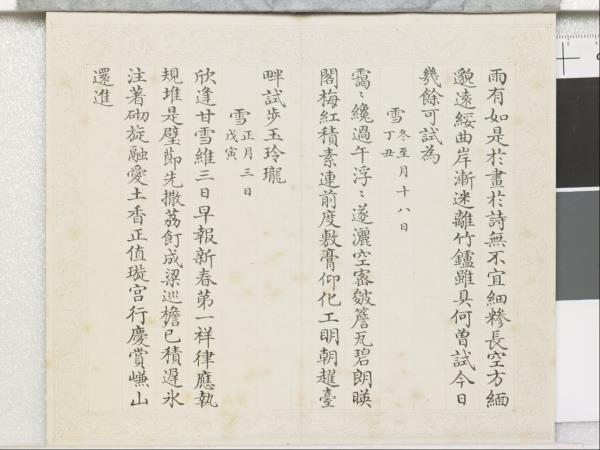 雨有如是於畫於詩無不宜細糝長空方緬
邈遠綏曲岸漸迷離竹鑪雖具何曾試今日
幾餘可試為
雪 冬至月十八日
丁丑
靄〻纔過午浮〻遂灑空密皴簷瓦碧朗暎
閣梅紅積素連前度敷膏仰化工明朝趯臺
畔試步玉玲瓏
雪 正月三日
戊寅
欣逢甘雪維三日早報新春第一祥律應執
規堆是璧節先撒荔飣成梁巡檐已積遲氷
注著砌旋融愛土香正值璇宮行慶賞㠗山
還進